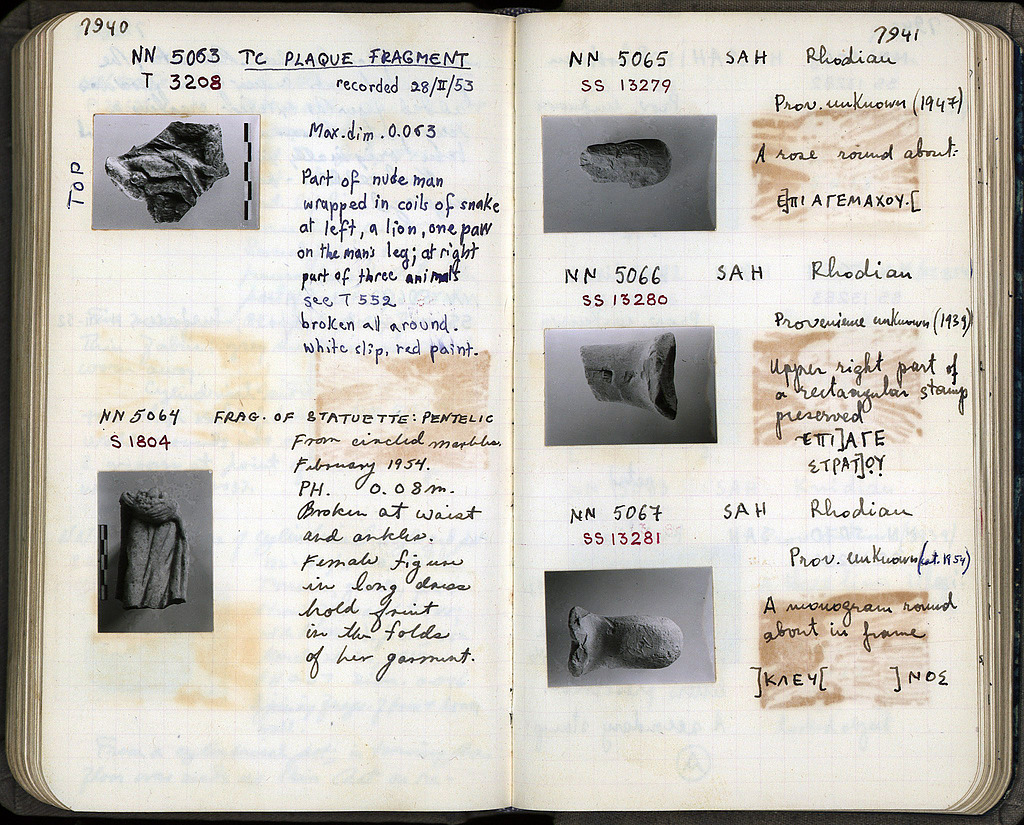 7940
NN 5063 TC PLAQUE FRAGMENT
T 3208 recorded 28/II/53
TOP
Max. dim. 0.063
Part of nude man
wrapped in coils of snake
at left, a lion, one paw
on the man's leg; at right
part of three animals
see T 552.
broken all around.
white slip, red paint.
NN 5064 FRAG. OF STATUETTE: PENTELIC
S 1804
From circled marbles.
February 1954.
PH. 0.08m.
Broken at waist
and ankles.
Female figure
in long dress
hold fruit
in the folds
of her garment.
7941
NN 5065 SAH Rhodian
SS 13279
Prov. unknown (1947)
A rose round about:
Ε]ΠΙ ΑΓΕΜΑΧΟΥ.[
NN 5066 SAH Rhodian
SS 13280
Provenience unknown (1939)
Upper right part of
a rectangular stamp
preserved
ΕΠΙ]ΑΓΕ
ΣΤΡΑΤ]ΟΥ
NN 5067 SAH Rhodian
SS 13281
Prov. unknown (cat. 1954)
A monogram round
about in frame
]ΚΛΕΥ[ ]ΝΟΣ